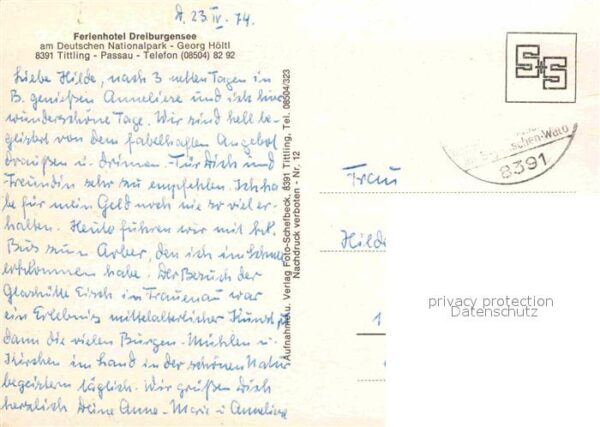 d. 23. IV. 74.
Ferienhotel Dreiburgensee
am Deutschen Nationalpark - Georg Höltl
8391 Tittling - Passau - Telefon (08504) 82 92
Liebe Hilde, nach 3 netten Tagen in
B. genießen Anneliese und ich hier
wunderschöne Tage. Wir sind hell be-
geistert von dem fabelhaften Angebot
draußen u. drinnen. Für Dich und
Freundin sehr zu empfehlen. Ich ha-
be für mein Geld noch nie so viel er-
halten. Heute fuhren wir mit
Bus zum Arber, den ich im Schnee
erklommen habe. Der Besuch der
Glashütte Eisch in Frauenau war
ein Erlebnis mittelalterlicher Kunst,
dann die vielen Burgen - Mühlen u.
Kirchen im Land in der schönen Natur
begeistern täglich. Wir grüßen Dich
herzlich Deine Anne-Marie u. Anneliese
Aufnahme u. Verlag Foto-Schefbeck, 8391 Tittling, Tel. 08504/323
Nachdruck verboten - Nr. 12
S+S
8391
Frau
Hilde
1
privacy protection
Datenschutz